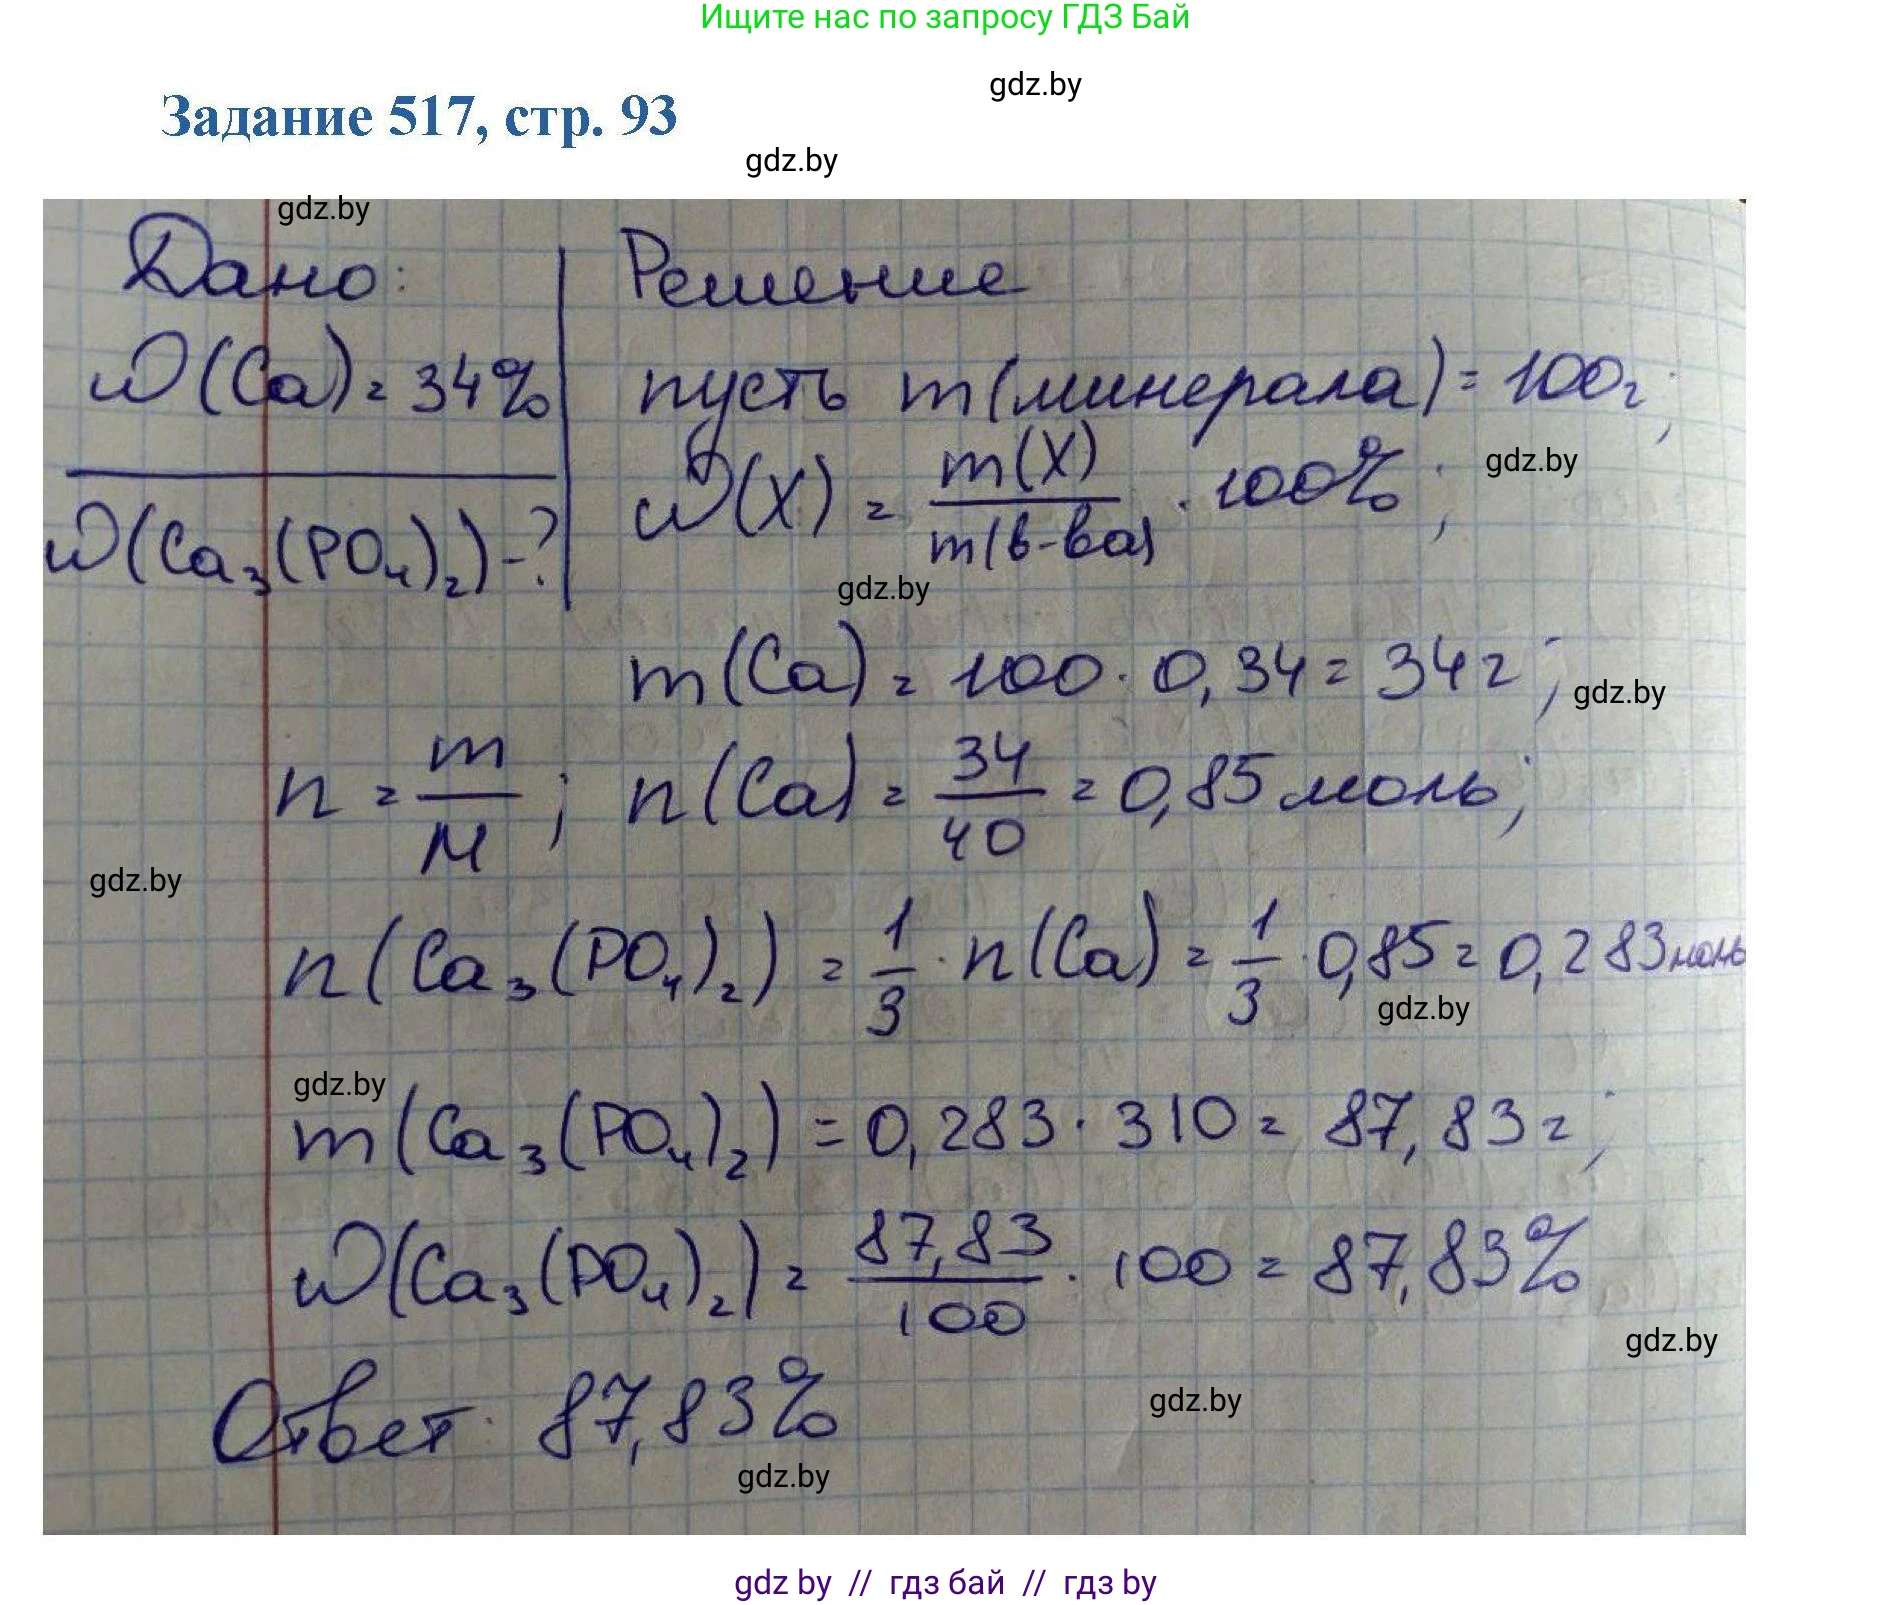 Ищите нас по запросу ГДЗ Бай
gdz.by
Задание 517, стр. 93
gdz.by
gdz.by
Дано:
W(Ca) = 34%
W(Ca₃(PO₄)₂) - ?
Решение
пусть m(минерала) = 100г;
W(X) = m(X)/m(в-ва) · 100%;
gdz.by
gdz.by
m(Ca) = 100 · 0,34 = 34г;
gdz.by
n = m/M; n(Ca) = 34/40 = 0,85 моль;
gdz.by
n(Ca₃(PO₄)₂) = 1/3 · n(Ca) = 1/3 · 0,85 = 0,283 моль
gdz.by
gdz.by
m(Ca₃(PO₄)₂) = 0,283 · 310 = 87,83г;
W(Ca₃(PO₄)₂) = 87,83/100 · 100 = 87,83%
gdz.by
gdz.by
Ответ: 87,83%
gdz.by
gdz by // гдз бай // гдз by